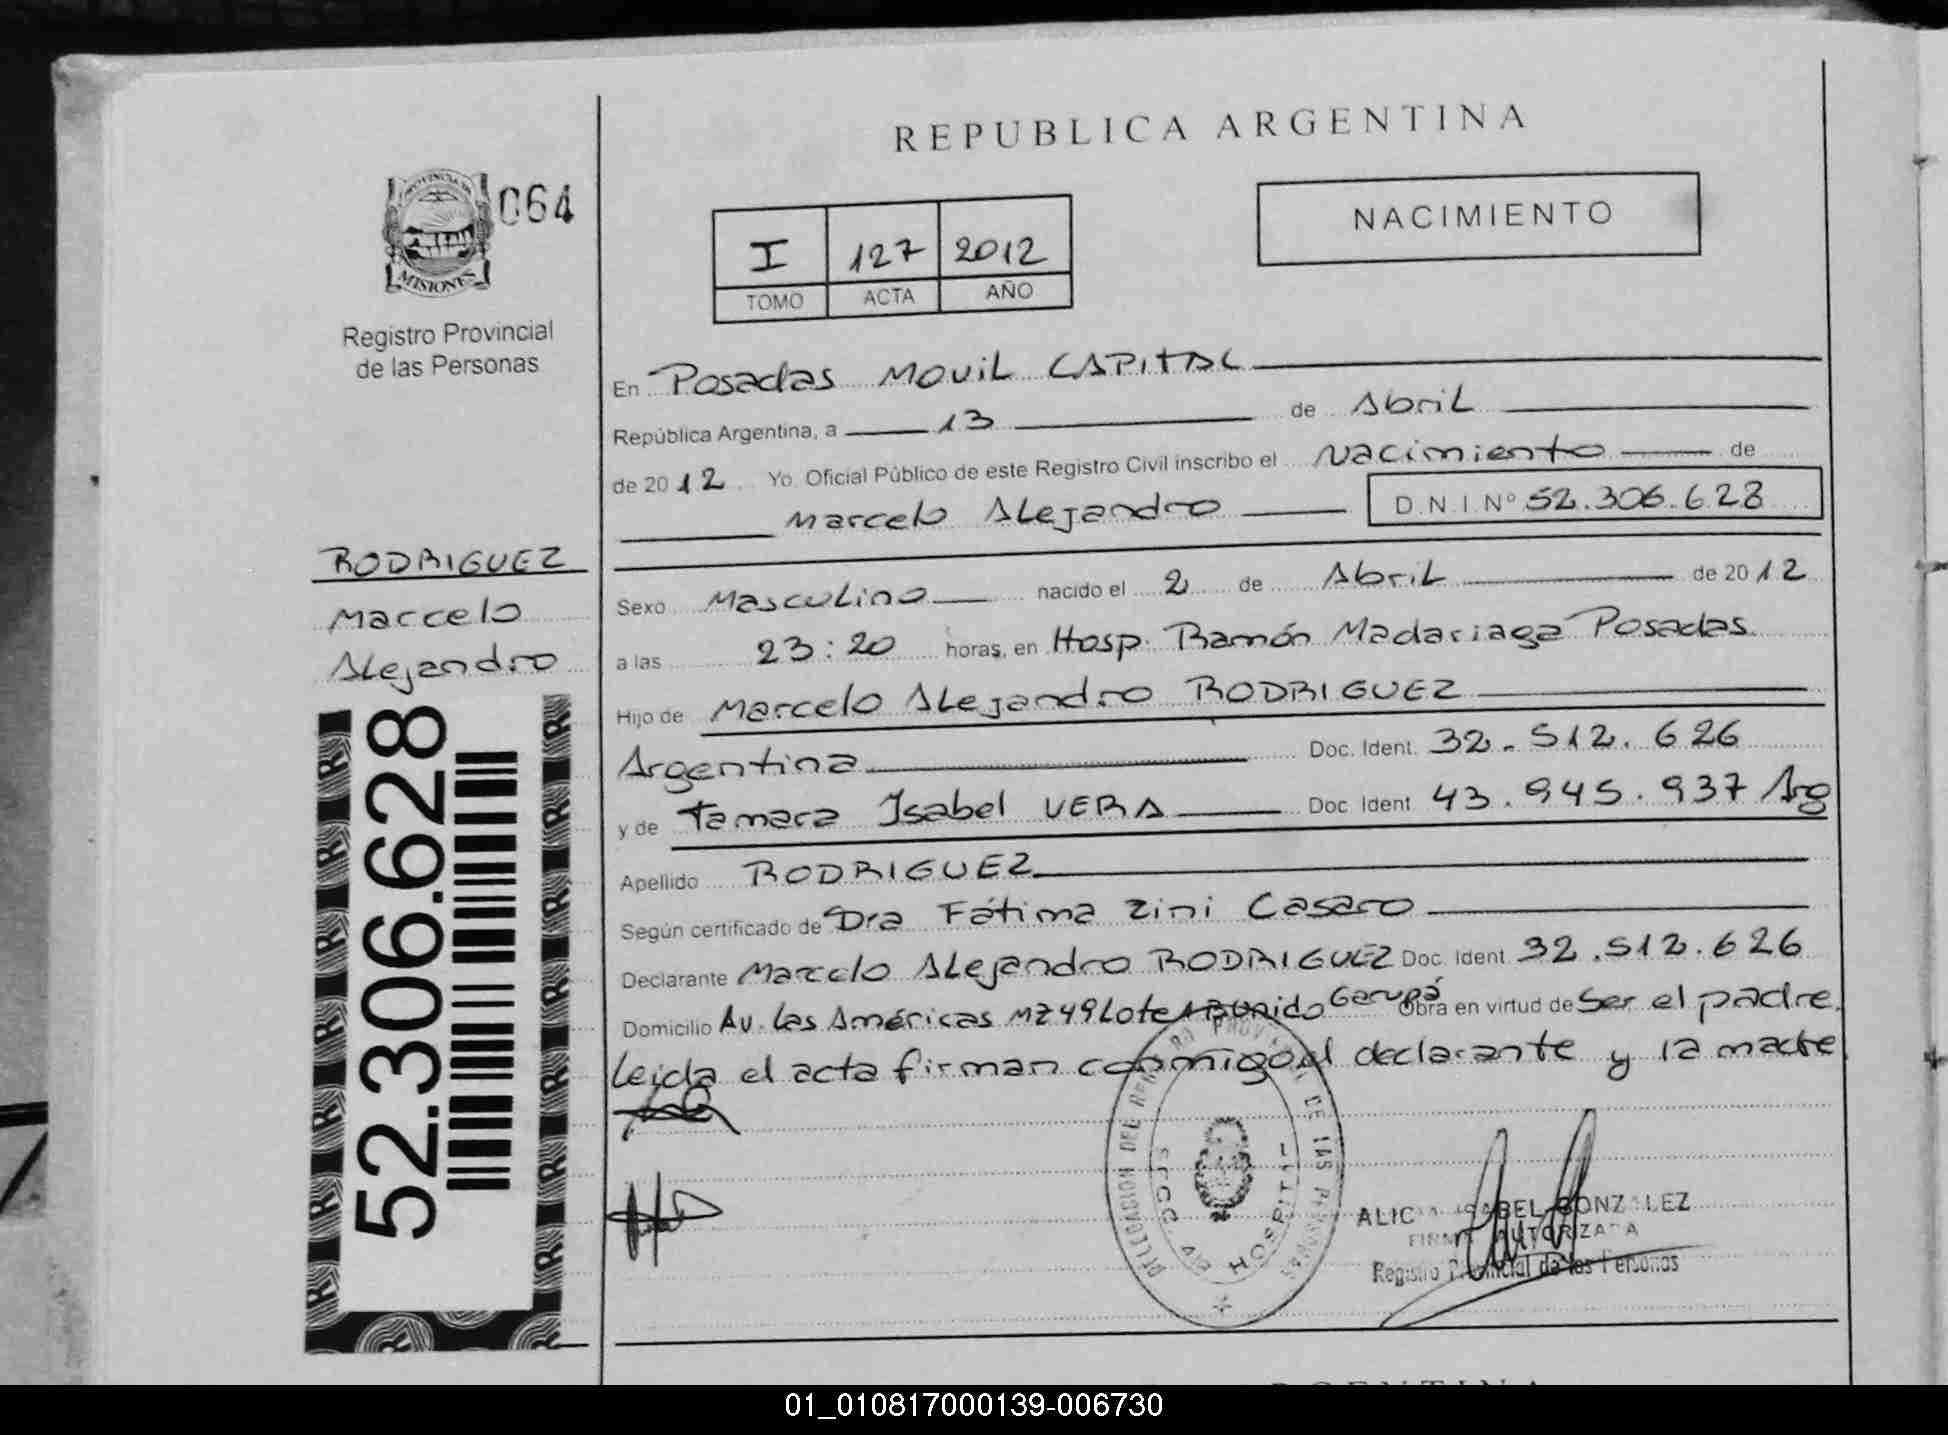 REPUBLICA ARGENTINA
PROVINCIA DE
MISIONES
064
Registro Provincial
de las Personas
I 127 2012
TOMO ACTA AÑO
NACIMIENTO
En Posadas Movil CAPITAL
República Argentina, a 13 de Abril
de 2012 Yo, Oficial Público de este Registro Civil inscribo el Nacimiento de
Marcelo Alejandro D.N.I Nº 52.306.628
RODRIGUEZ
Marcelo
Alejandro
52.306.628
Sexo Masculino nacido el 2 de Abril de 2012
a las 23:20 horas, en Hosp. Ramón Madariaga Posadas
Hijo de Marcelo Alejandro RODRIGUEZ
Argentina Doc. Ident. 32.512.626
y de Tamara Isabel VERA Doc. Ident 43.945.937 Arg
Apellido RODRIGUEZ
Según certificado de Dra Fátima Zini Casaro
Declarante Marcelo Alejandro RODRIGUEZ Doc. Ident. 32.512.626
Domicilio Av. Las Américas MZ49 Lote Garupá Obra en virtud de Ser el padre.
Leida el acta firman conmigo el declarante y la madre
DELEGACION DEL REGISTRO PROVINCIAL DE LAS PERSONAS
HOSPITAL
ALICIA ISABEL GONZALEZ
FIRMA AUTORIZADA
Registro Provincial de las Personas
01_010817000139-006730